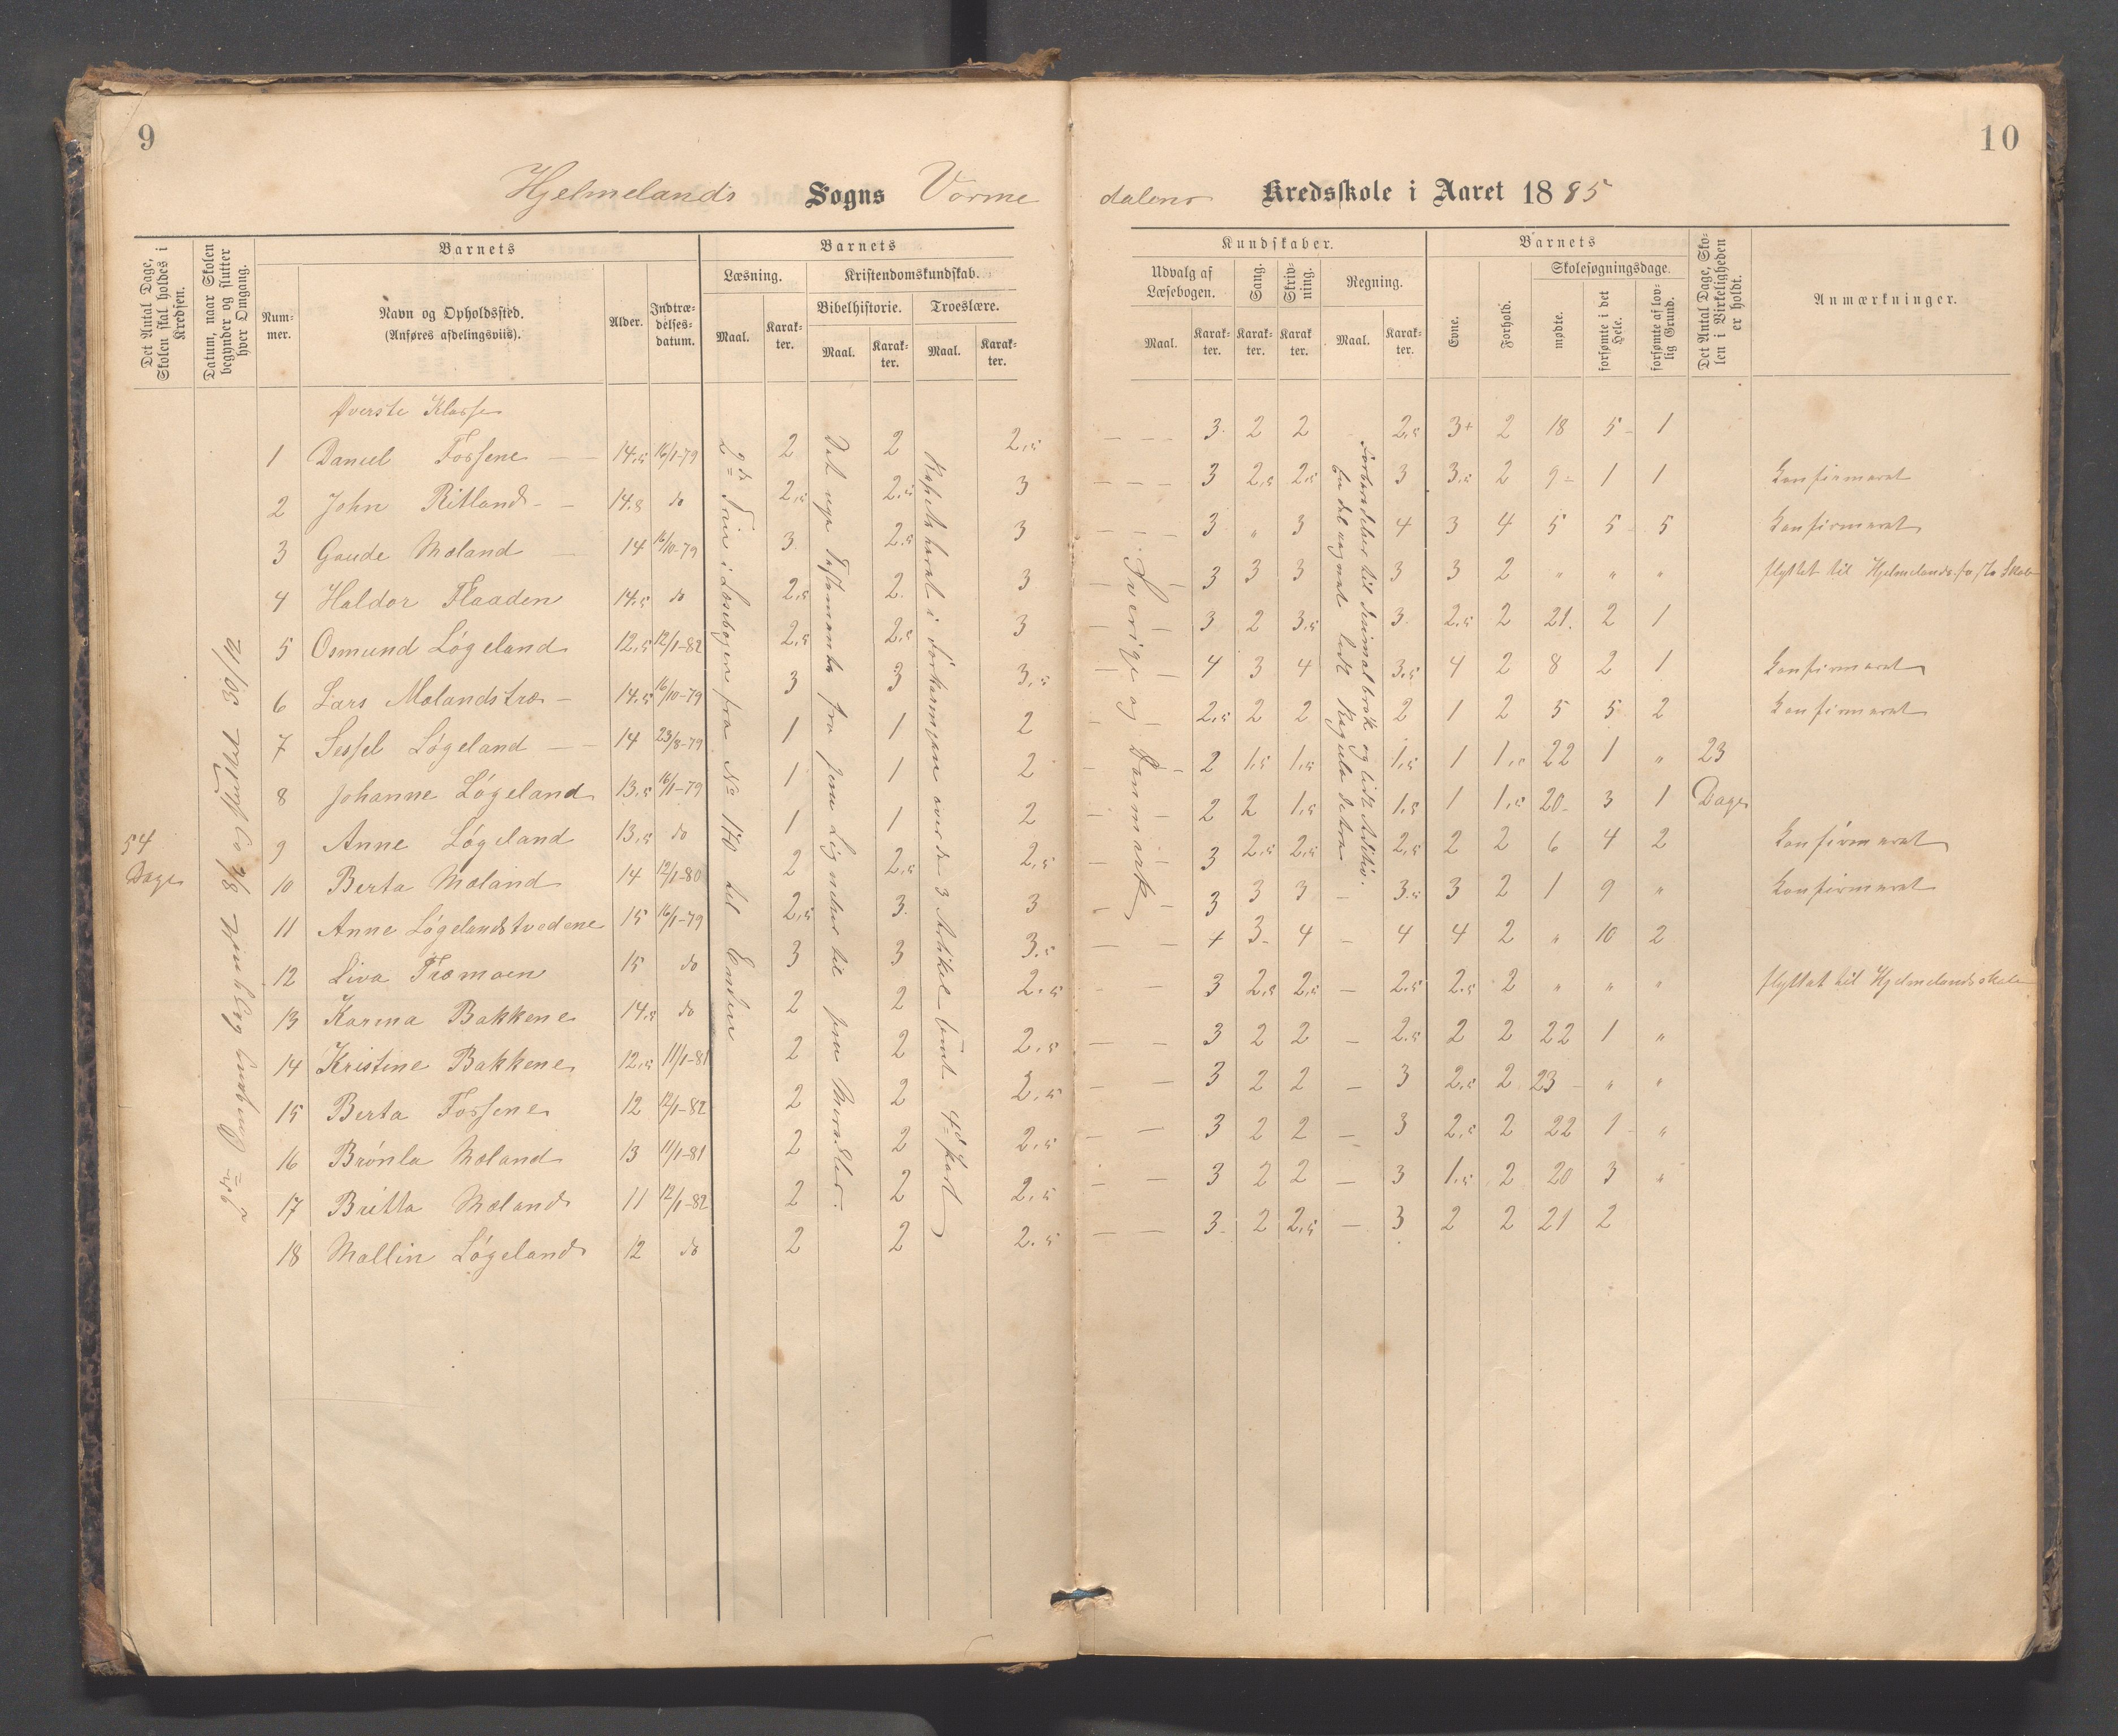 9
10
Hjelmelands Sogns Vormedalens Kredsskole i Aaret 1885
Det Antal Dage, Skolen skal holdes i Kredsen.
Datum, naar Skolen begynder og slutter hver Omgang.
Barnets
Nummer.
Navn og Opholdssted.
(Anføres afdelingsviis).
Alder.
Indtrædelsesdatum.
Barnets
Læsning.
Maal.
Karakter.
Kristendomskundskab.
Bibelhistorie.
Maal.
Karakter.
Troeslære.
Maal.
Karakter.
Kundskaber.
Udvalg af Læsebogen.
Maal.
Karakter.
Sang.
Karakter.
Skrivning.
Karakter
Regning.
Maal.
Karakter.
Barnets
Evne.
Forhold.
Skolesøgningsdage.
mødte.
forsømte i det Hele.
forsømte af lovlig Grund.
Det Antal Dage, Skolen i Virkeligheden er holdt.
Anmærkninger.
Øverste Klasse
1 Daniel Fossene 14,5 16/1-79 2 2 2,5 3 2 2 2,5 3+ 2 18 5 1
2 John Ritland 14.8 do 2,5 2.5 3 3 2,5 2,5 3 3,5 2 9 1 1 Konfirmeret
3 Gaude Mæland 14 16/10-79 3 2.5 3 3 „ 3 4 3 4 5 5 5 Konfirmeret
4 Haldor Flaaden 14.5 do 2,5 2 3 3 3 3 3 3 2 „ „ „ flyttet til Hjelmelands faste Skole
5 Osmund Løgeland 12,5 12/1-82 2,5 2,5 3 3 2 3,5 3 2,5 2 21. 2 1
6 Lars Mælandstræ 14.5 16/10-79 3 3 3,5 4 3 4 3,5 4 2 8 2 1 Konfirmeret
7 Sessel Løgeland 14 23/8-79 1 1 2 2,5 2 2 2 1 2 5 5 2 Konfirmeret
8 Johanne Løgeland 13,5 16/1-79 1 1 2 2 1,5 1,5 1,5 1 1,5 22 1 „ 23
9 Anne Løgeland 13,5 do 1 1 2 2 2 1,5 1,5 1 1,5 20 3 1 Dage
54
Dage
10 Berta Mæland 14 12/1-80 2 2,5 2,5 3 2,5 2,5 2,5 2 2 6 4 2 Konfirmeret
11 Anne Løgelandstvedene 15 16/1-79 2,5 3 3 3 3 3 3.5 3 2 1 9 „ Konfirmeret
12 Liva Træmoen 15 do 3 3 3.5 4 3 4 4 4 2 „ 10 2
13 Karina Bakkene 14.5 do 2 2 2.5 3 2,5 2,5 2.5 2.5 2 „ „ „ flyttet til Hjelmelandsskole
14 Kristine Bakkene 12,5 11/1-81 2 2 2.5 3 2 2 2.5 2 2 22 1 „
15 Berta Fossene 12 12/1-82 2 2 2.5 3 2 2 3 2.5 2 23 „ „
16 Brønla Mæland 13 11/1-81 2 2 2,5 3 2 2 3 2,5 2 22 1 „
17 Britta Mæland 11 12/1-82 2 2 2,5 3 2 2 3 1,5 2 20 3 „
18 Mallin Løgeland 12 do 2 2 2.5 3 2 2,5 3 2 2 21 2
Læsebogen fra No 170 til Enden
Det nye Testamente fra Jesu Lignelser til Jesu Mirakler.
Forklaringen over den 3 Artikel 4de Part
Sverige og Danmark